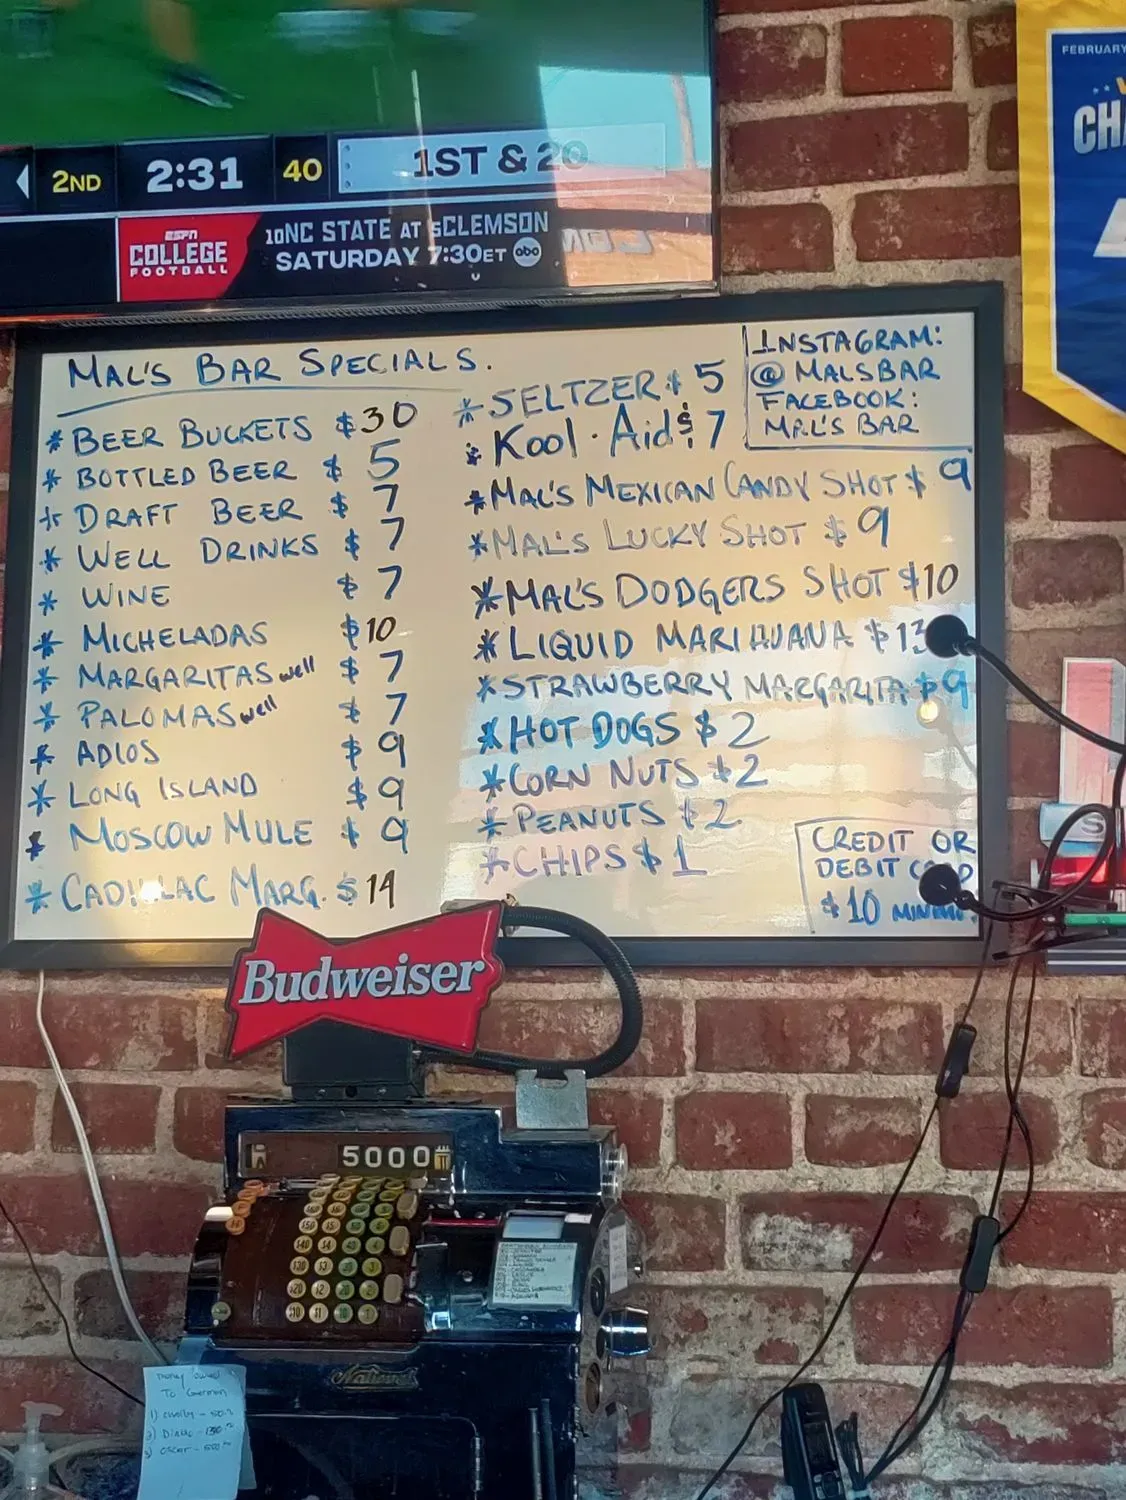 2ND 2:31 40 1ST & 20
ESPN
COLLEGE
FOOTBALL
10NC STATE AT 5CLEMSON
SATURDAY 7:30ET abc
FEBRUARY
MAL'S BAR SPECIALS.
* BEER BUCKETS $30
* BOTTLED BEER $ 5
* DRAFT BEER $ 7
* WELL DRINKS $ 7
* WINE $ 7
* MICHELADAS $10
* MARGARITAS well $ 7
* PALOMAS well $ 7
* ADIOS $ 9
* LONG ISLAND $ 9
* MOSCOW MULE $ 9
* CADILLAC MARG. $ 14
* SELTZER $ 5
* Kool·Aid $ 7
* MAL'S MEXICAN CANDY SHOT $ 9
* MAL'S LUCKY SHOT $ 9
* MAL'S DODGERS SHOT $10
* LIQUID MARIHUANA $13
* STRAWBERRY MARGARITA $9
* HOT DOGS $2
* CORN NUTS $2
* PEANUTS $2
* CHIPS $1
INSTAGRAM:
@ MALSBAR
FACEBOOK:
MAL'S BAR
CREDIT OR
DEBIT
$10
Budweiser
5000
National
money owed
To German